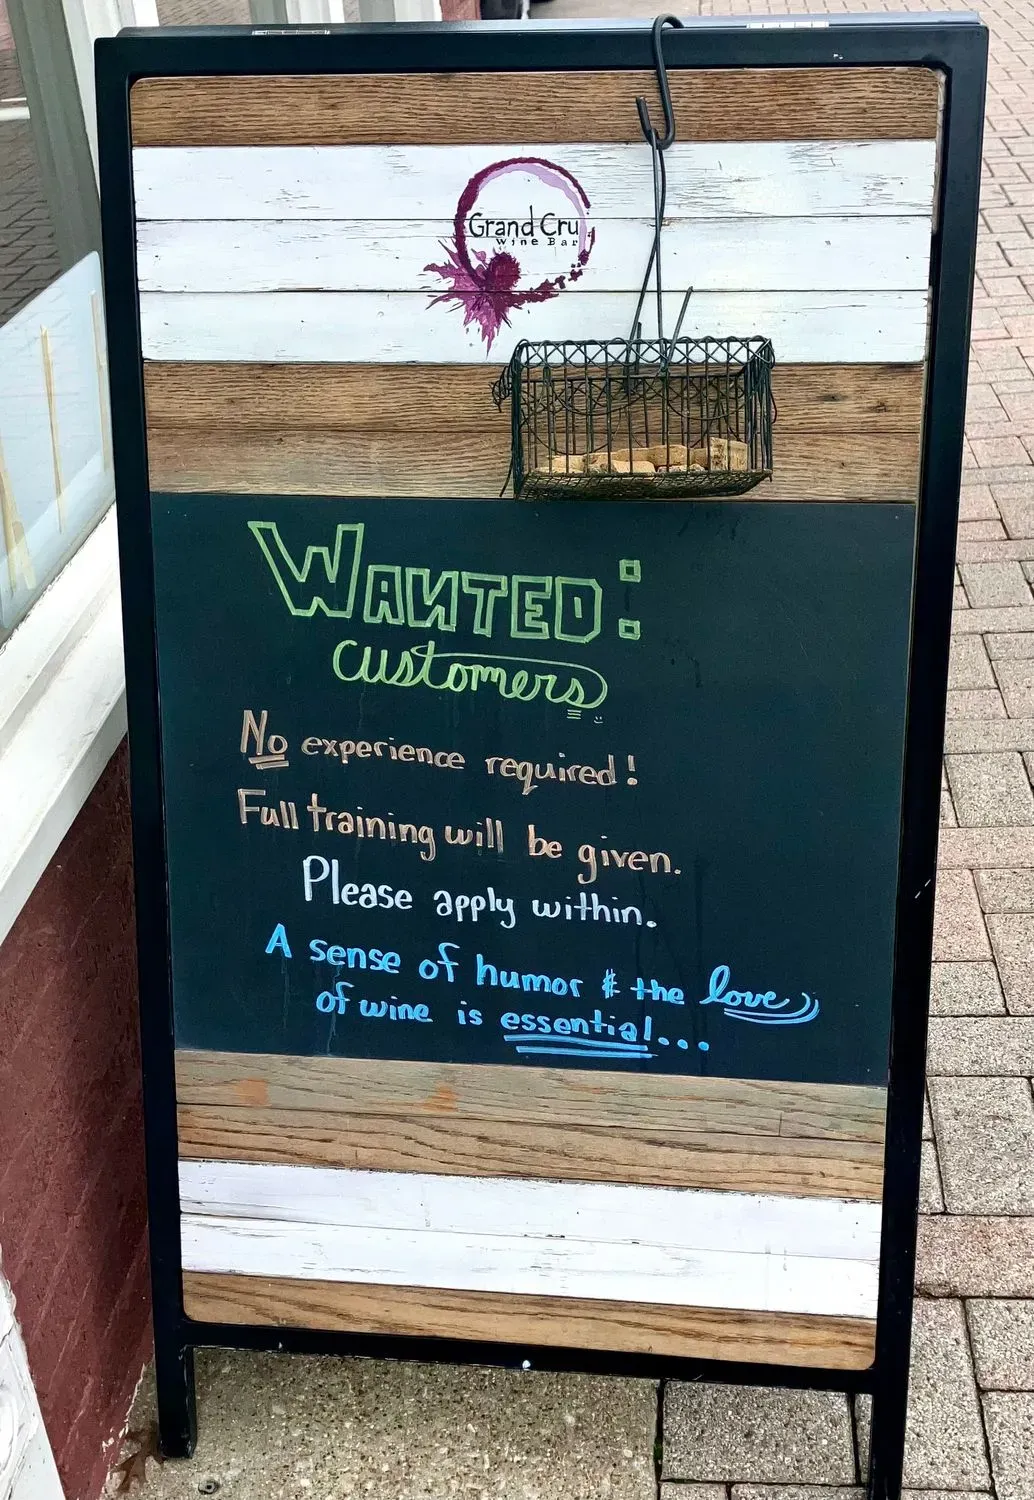 Grand Cru
Wine Bar
WANTED:
customers
No experience required!
Full training will be given.
Please apply within.
A sense of humor & the love
of wine is essential...